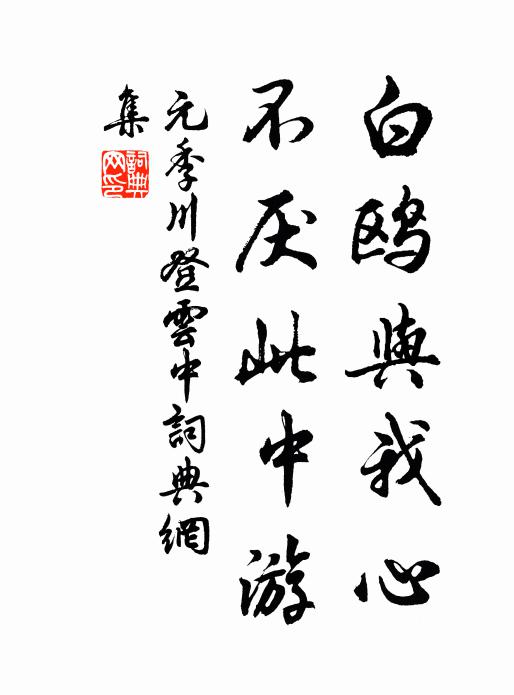 白鸥與我心
不厌此中游
元季川登雲中詞典網
集
詞典
网印